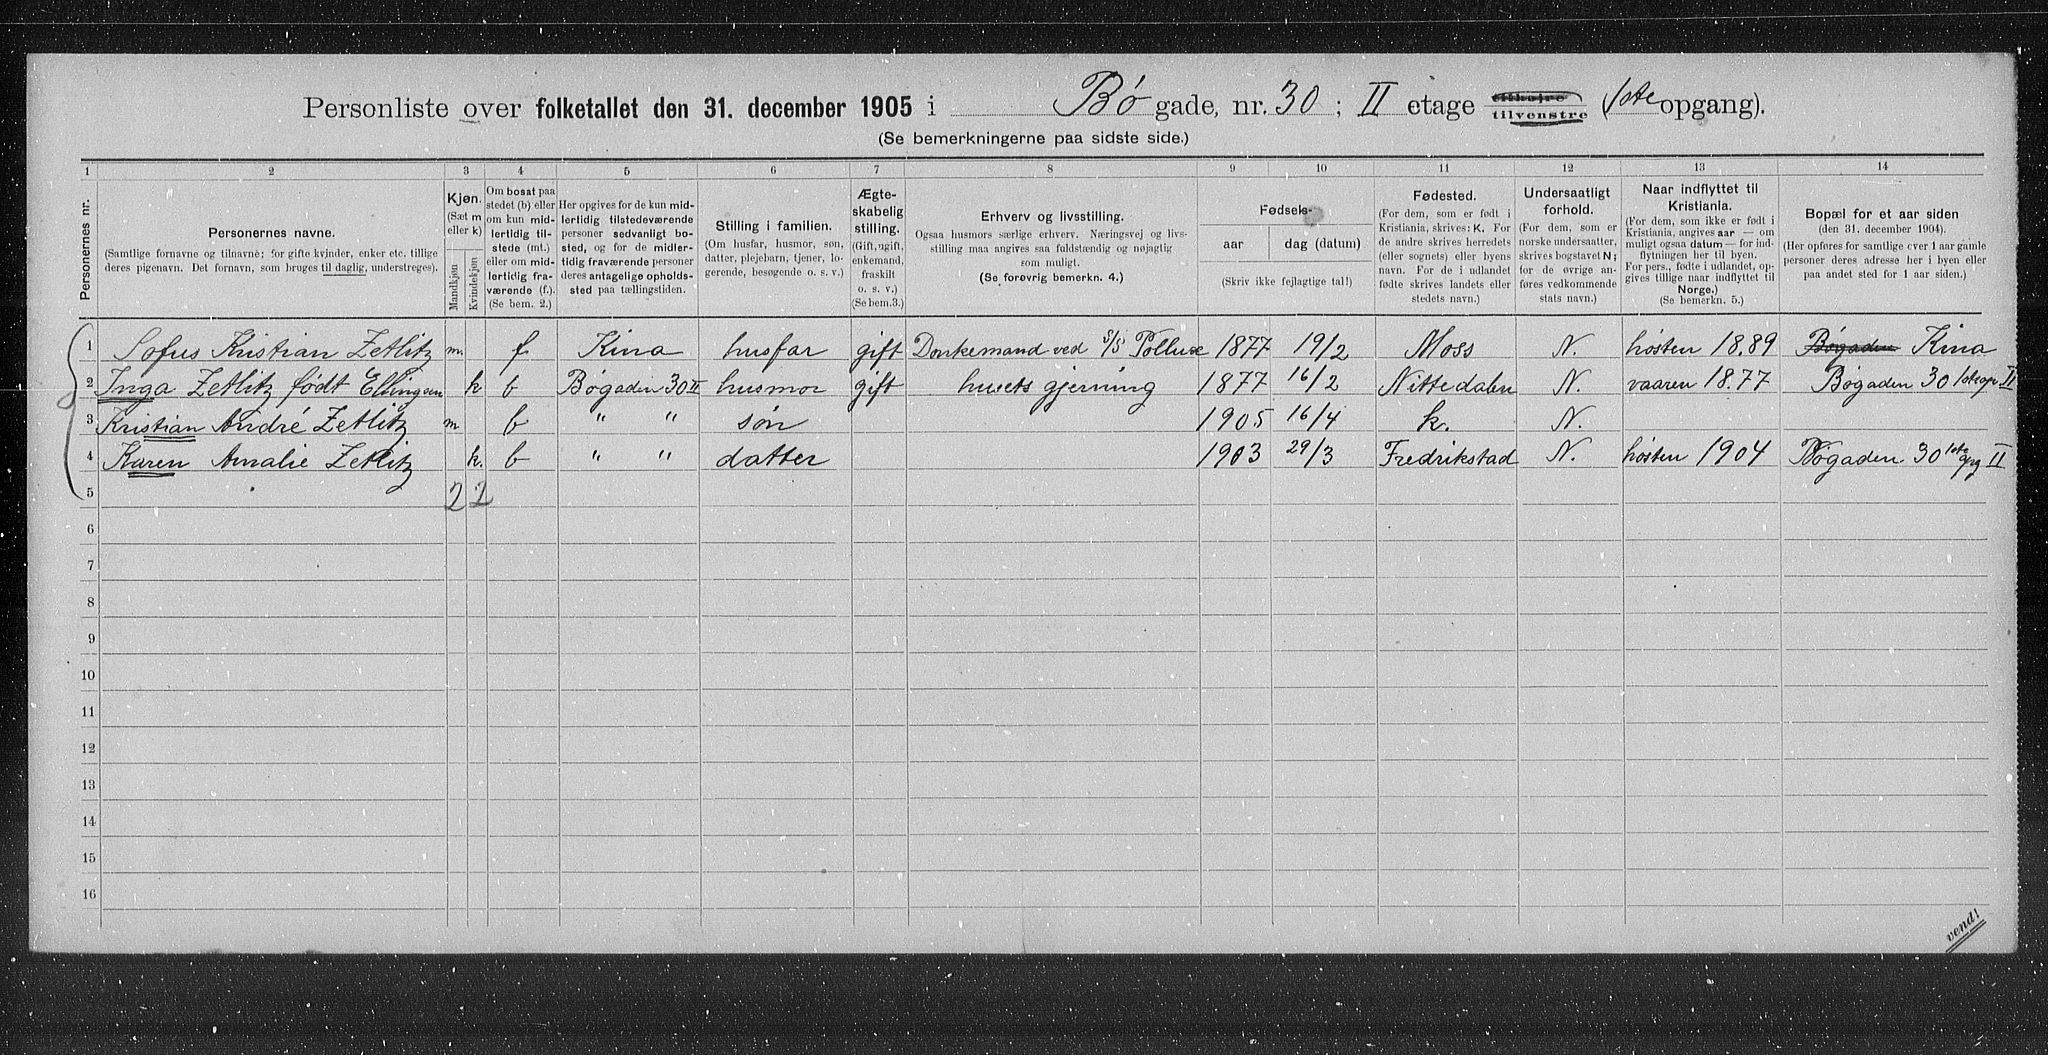 Personliste over folketallet den 31. december 1905 i Bø gade, nr. 30 ; II etage tilhøire tilvenstre (1ste opgang).
(Se bemerkningerne paa sidste side.)
1 2 3 4 5 6 7 8 9 10 11 12 13 14
Personernes nr.
Personernes navne.
(Samtlige fornavne og tilnavne; for gifte kvinder, enker etc. tillige
deres pigenavn. Det fornavn, som bruges til daglig, understreges).
Kjøn.
(Sæt m
eller k)
Mandkjøn
Kvindekjøn
Om bosat paa
stedet (b) eller
om kun mid-
lertidig til-
stede (mt.)
eller om mid-
lertidig fra-
værende (f.).
(Se bem. 2.)
Her opgives for de kun mid-
lertidig tilstedeværende
personer sedvanligt bo-
sted, og for de midler-
tidig fraværende personer
deres antagelige opholds-
sted paa tællingstiden.
Stilling i familien.
(Om husfar, husmor, søn,
datter, plejebarn, tjener, lo-
gerende, besøgende o. s. v.)
Ægte-
skabelig
stilling.
(Gift, ugift,
enkemand,
fraskilt
o. s. v.)
(Se bem.3.)
Erhverv og livsstilling.
Ogsaa husmors særlige erhverv. Næringsvej og livs-
stilling maa angives saa fuldstændig og nøjagtig
som muligt.
(Se forøvrig bemerkn. 4.)
Fødsels-
aar
dag (datum)
(Skriv ikke fejlagtige tal!)
Fødested.
(For dem, som er født i
Kristiania, skrives: K. For
de andre skrives herredets
(eller sognets) eller byens
navn. For de i udlandet
fødte skrives landets eller
stedets navn.)
Undersaatligt
forhold.
(For dem, som er
norske undersaatter,
skrives bogstavet N;
for de øvrige an-
føres vedkommende
stats navn.)
Naar indflyttet til
Kristiania.
(For dem, som ikke er født i
Kristiania, angives aar — om
muligt ogsaa datum — for ind-
flytningen her til byen.
For pers., fødte i udlandet, op-
gives tillige naar indflyttet til
Norge.)
(Se bemerkn. 5.)
Bopæl for et aar siden
(den 31. december 1904).
(Her opføres for samtlige over 1 aar gamle
personer deres adresse her i byen eller
paa andet sted for 1 aar siden.)
1 Sofus Kristian Zetlitz m. f Kina husfar gift Donkemand ved S/S Pollux 1877 19/2 Moss N. høsten 18.89 Bøgaden Kina
2 Inga Zetlitz født Ellingsen k b Bøgaden 30 II husmor gift husets gjerning 1877 16/2 Nittedalen N. vaaren 18.77 Bøgaden 30 1ste op II
3 Kristian André Zetlitz m b " " søn 1905 16/4 k. N.
4 Karen Amalie Zetlitz k. b " " datter 1903 29/3 Fredrikstad N. høsten 1904 Bøgaden 30 1ste opg II
5 2 2
6
7
8
9
10
11
12
13
14
15
16
vend!